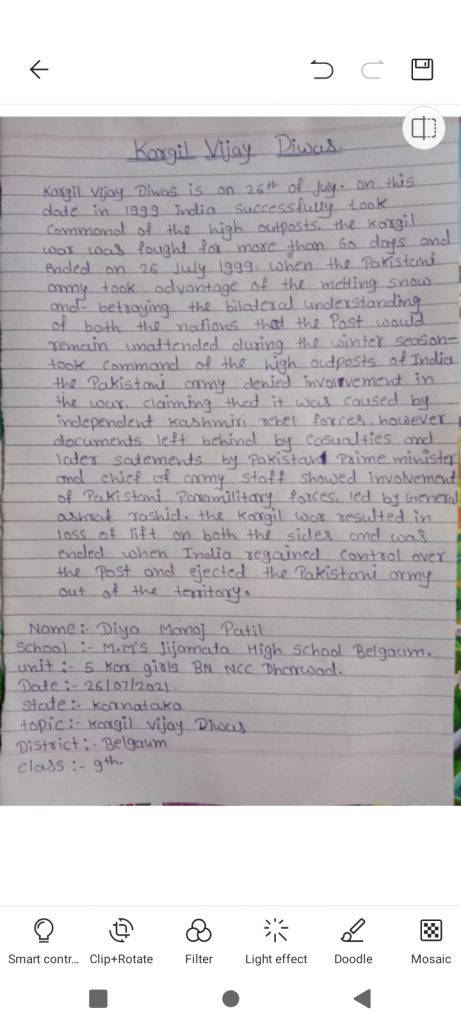 Kargil Vijay Diwas.
Kargil Vijay Diwas is on 26th of July. on this
date in 1999 India successfully took
Command of the high outposts. the kargil
war was fought for more than 60 days and
ended on 26 July 1999. when the Pakistani
army took advantage of the melting snow
and- betraying the bilateral understanding
of both the nations that the Post would
remain unattended during the winter season-
took command of the high outposts of India
the Pakistani army denied involvement in
the war, claiming that it was caused by
independent kashmiri rebel forces, however
documents left behind by casualties and
later satements by Pakistan Prime minister
and chief of army staff showed involvement
of Pakistani Paramilitary forces, led by General
ashraf rashid. the Kargil war resulted in
loss of lift on both the sides and was
ended when India regained control over
the Post and ejected the Pakistani army
out of the territory.
Name:- Diya Manoj Patil
School :- M.M'S Jijamata High School Belgaum.
unit :- 5 kar girls BN NCC Dharwad.
Date :- 26/07/2021.
State :- Karnataka
topic:- kargil vijay Diwas
District:- Belgaum
class :- 9th.
Smart contr... Clip+Rotate Filter Light effect Doodle Mosaic